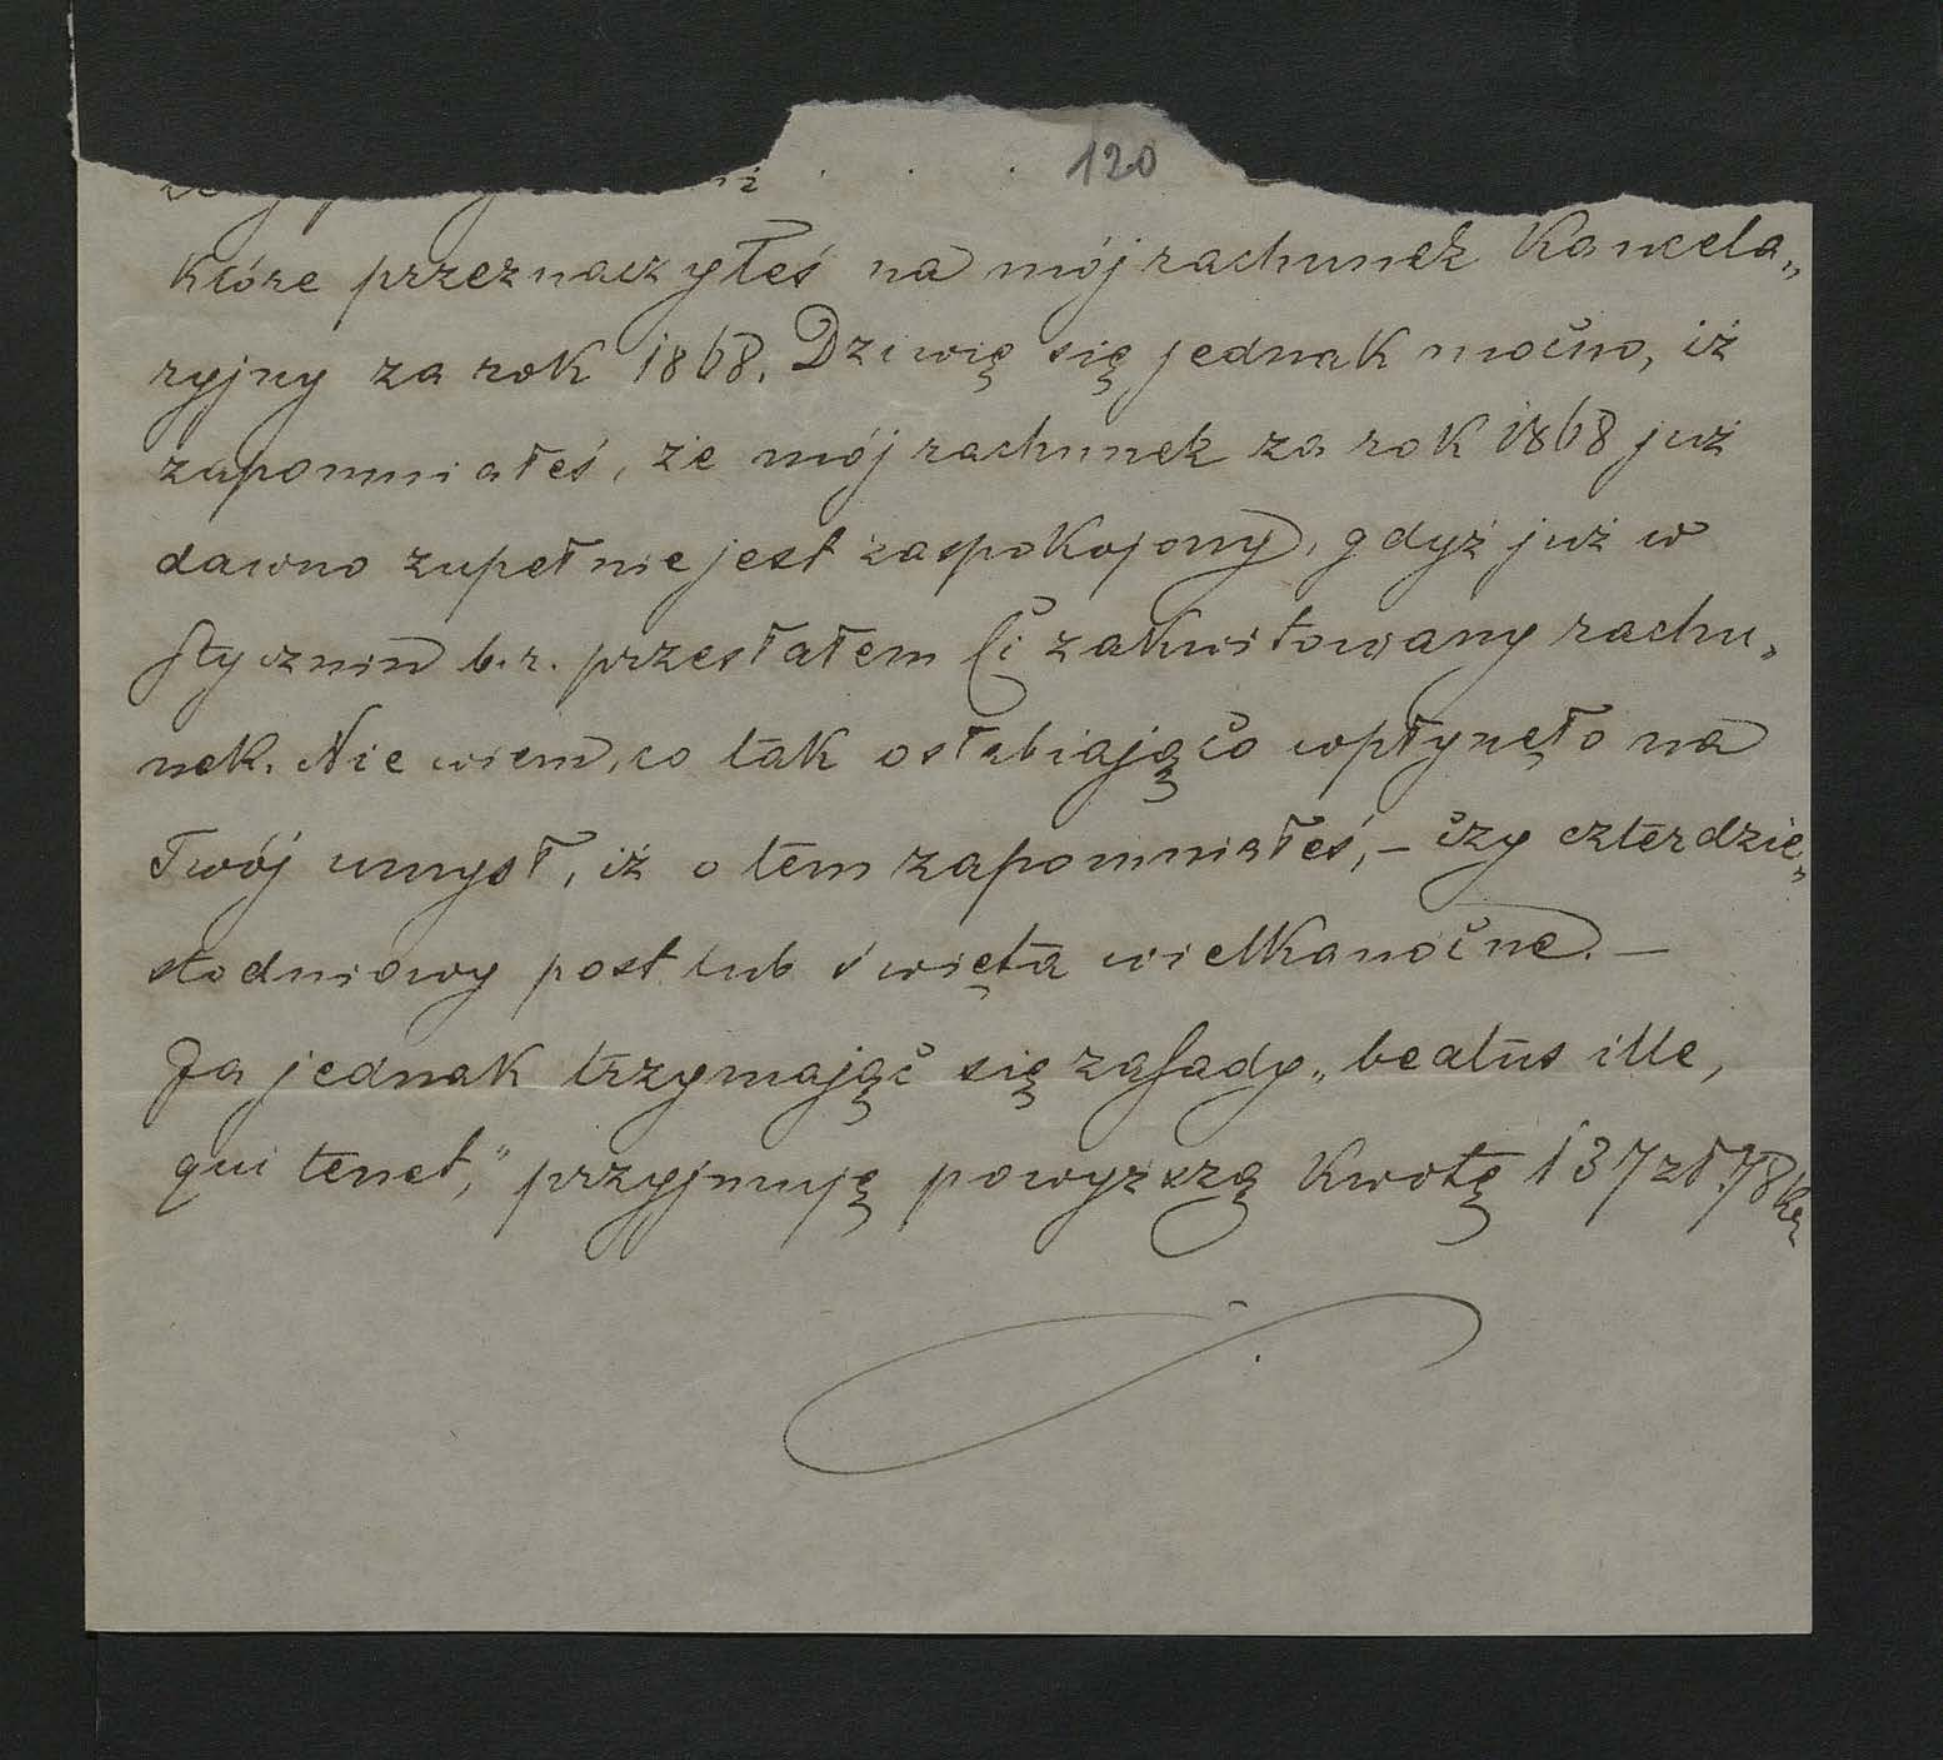 120
które przeznaczyłeś na mój rachunek Kancela„
ryjny za rok 1868. Dziwię się jednak mocno, iż
zapomniałeś, że mój rachunek za rok 1868 już
dawno zupełnie jest zaspokojony, gdyż już w
Styczniu b. r. przesłałem Ci zakwitowany rachu„
nek. Nie wiem, co tak osłabiająco wpłynęło na
Twój umysł, iż o tem zapomniałeś, – czy czterdzie„
stodniowy post lub święta wielkanocne. –
Ja jednak trzymając się zasady „beatus ille,
qui tenet," przyjmuję powyższą Kwotę 137 zł. 78 kr